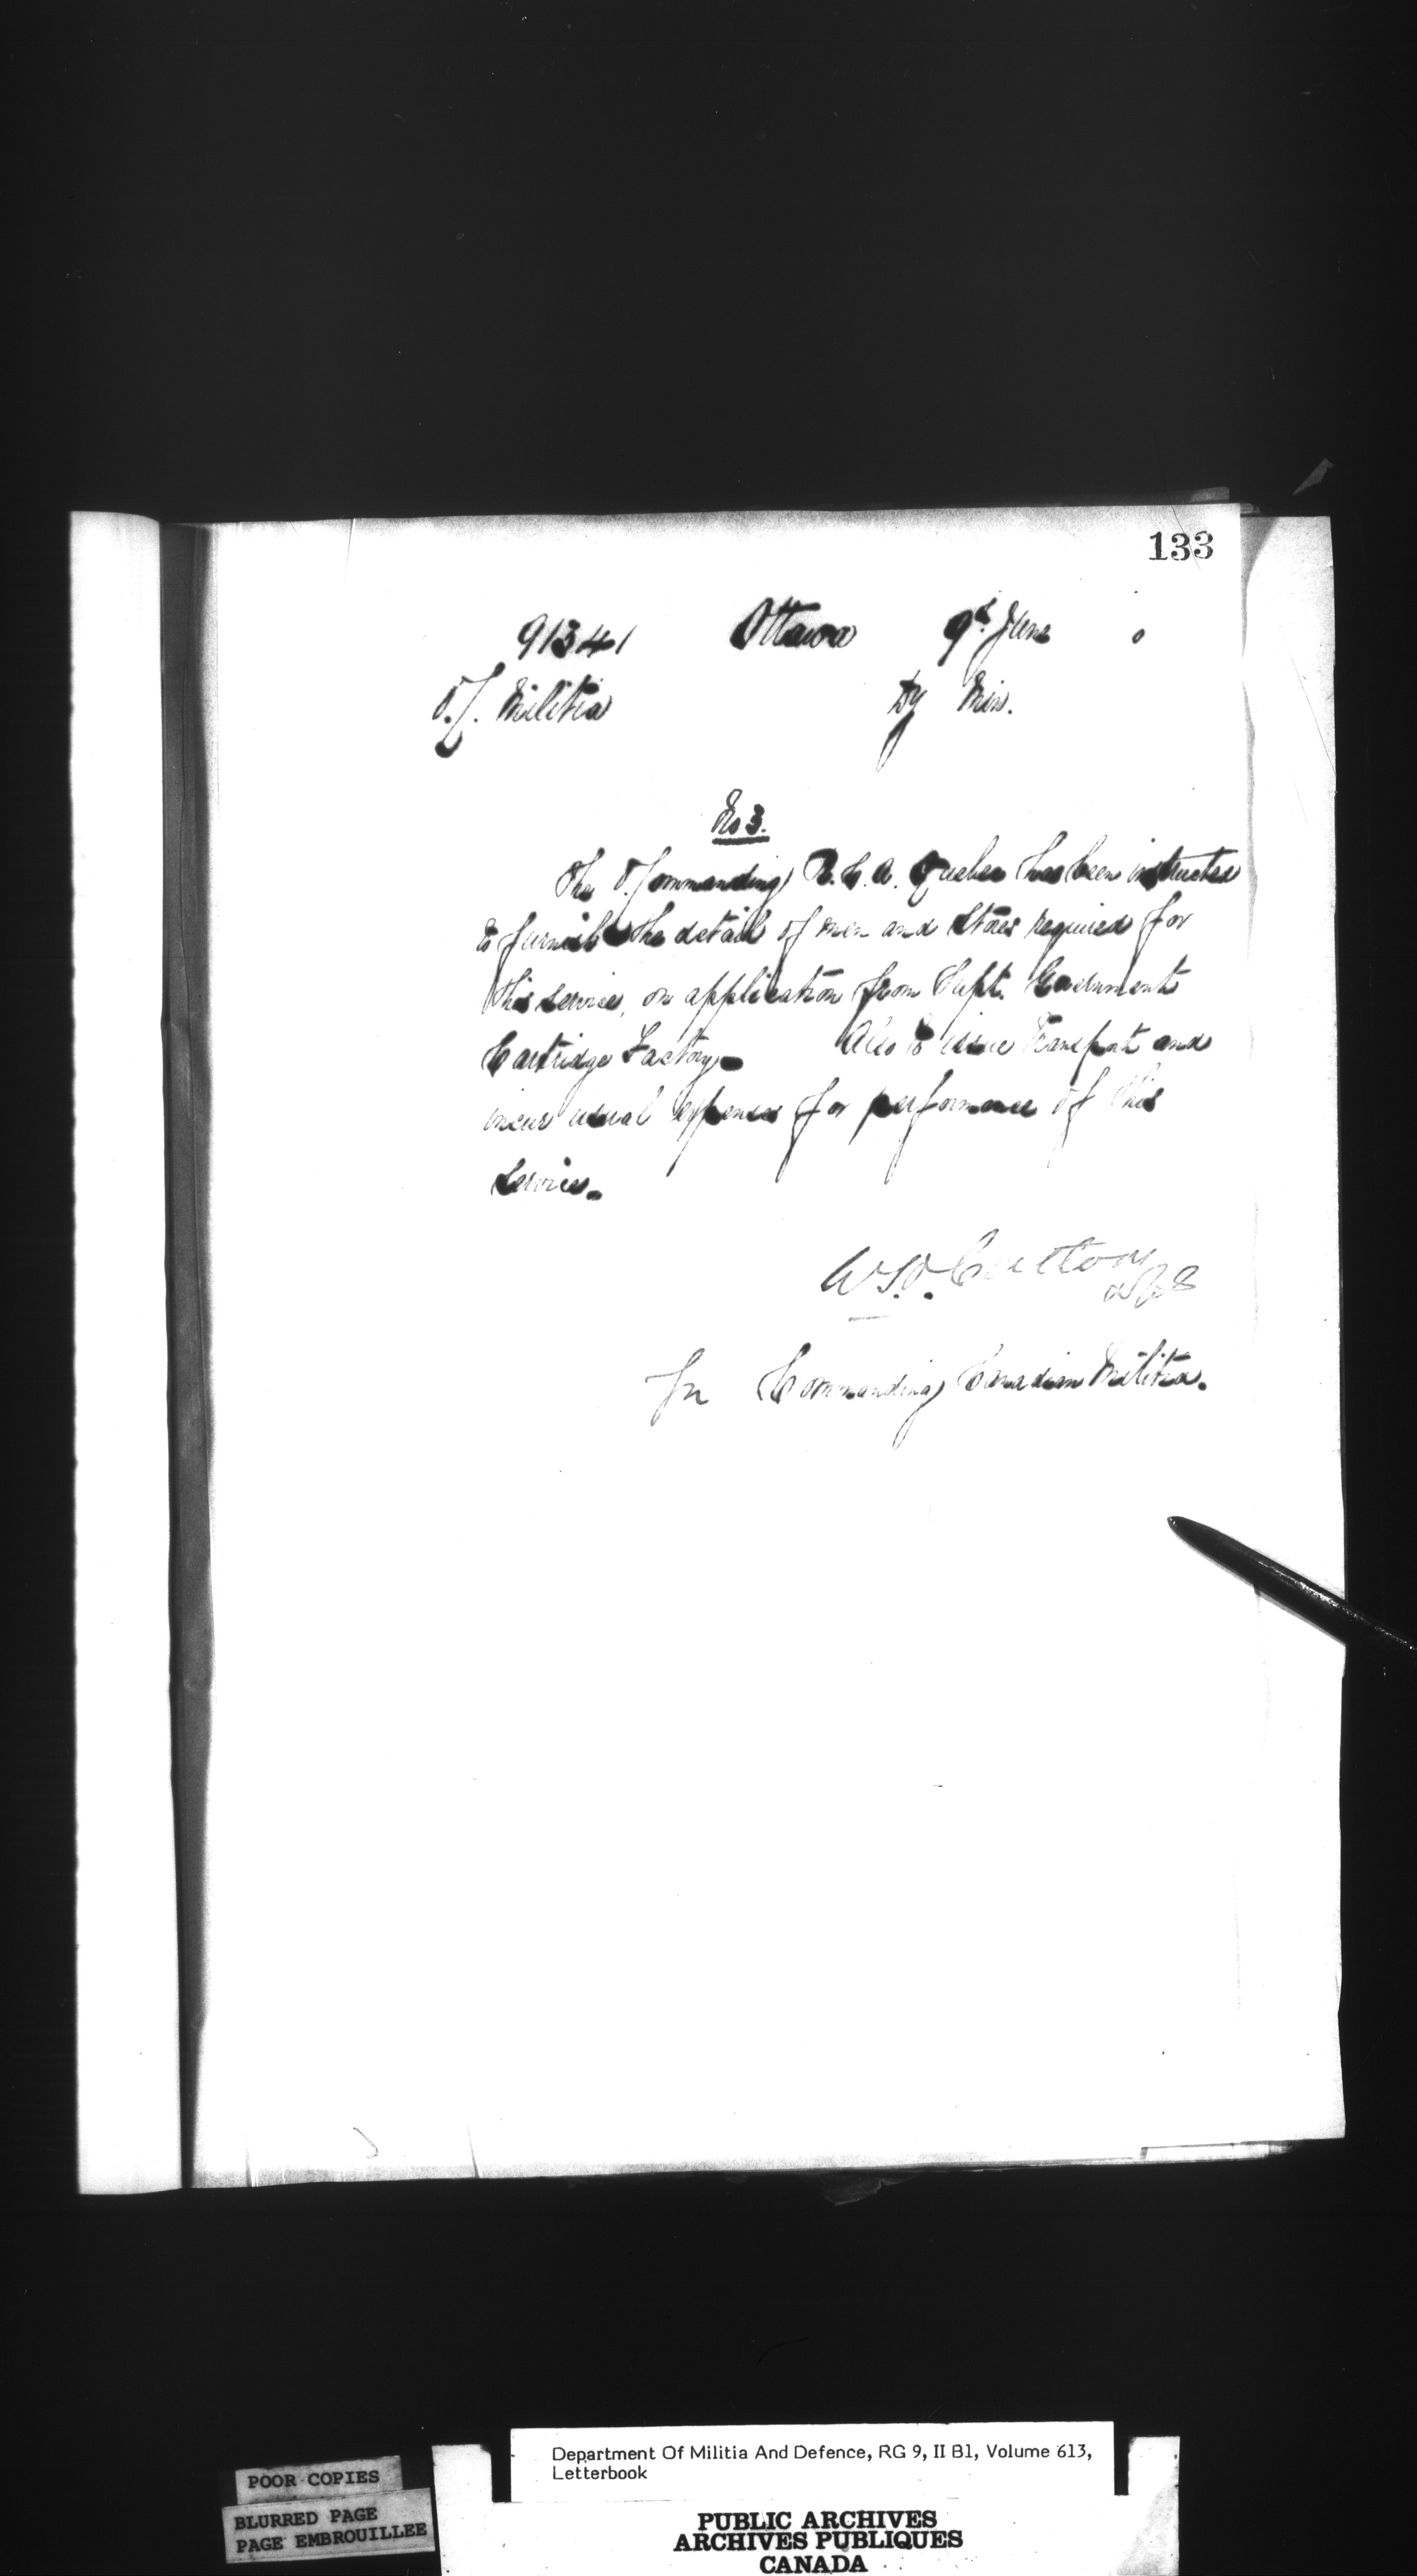 133
91341 Ottawa 9th June 0
Militia Dy Min.
No 3.
The O. Commanding R.C.A. Quebec has been instructed
to furnish the detail of men and Stores required for
this service, on application from Supt. Government
Cartridge Factory. Also to issue Transport and
incur usual expenses for performance of this
Service.
Commanding Canadian Militia.
POOR COPIES
BLURRED PAGE
PAGE EMBROUILLEE
Department Of Militia And Defence, RG 9, II B1, Volume 613,
Letterbook
PUBLIC ARCHIVES
ARCHIVES PUBLIQUES
CANADA